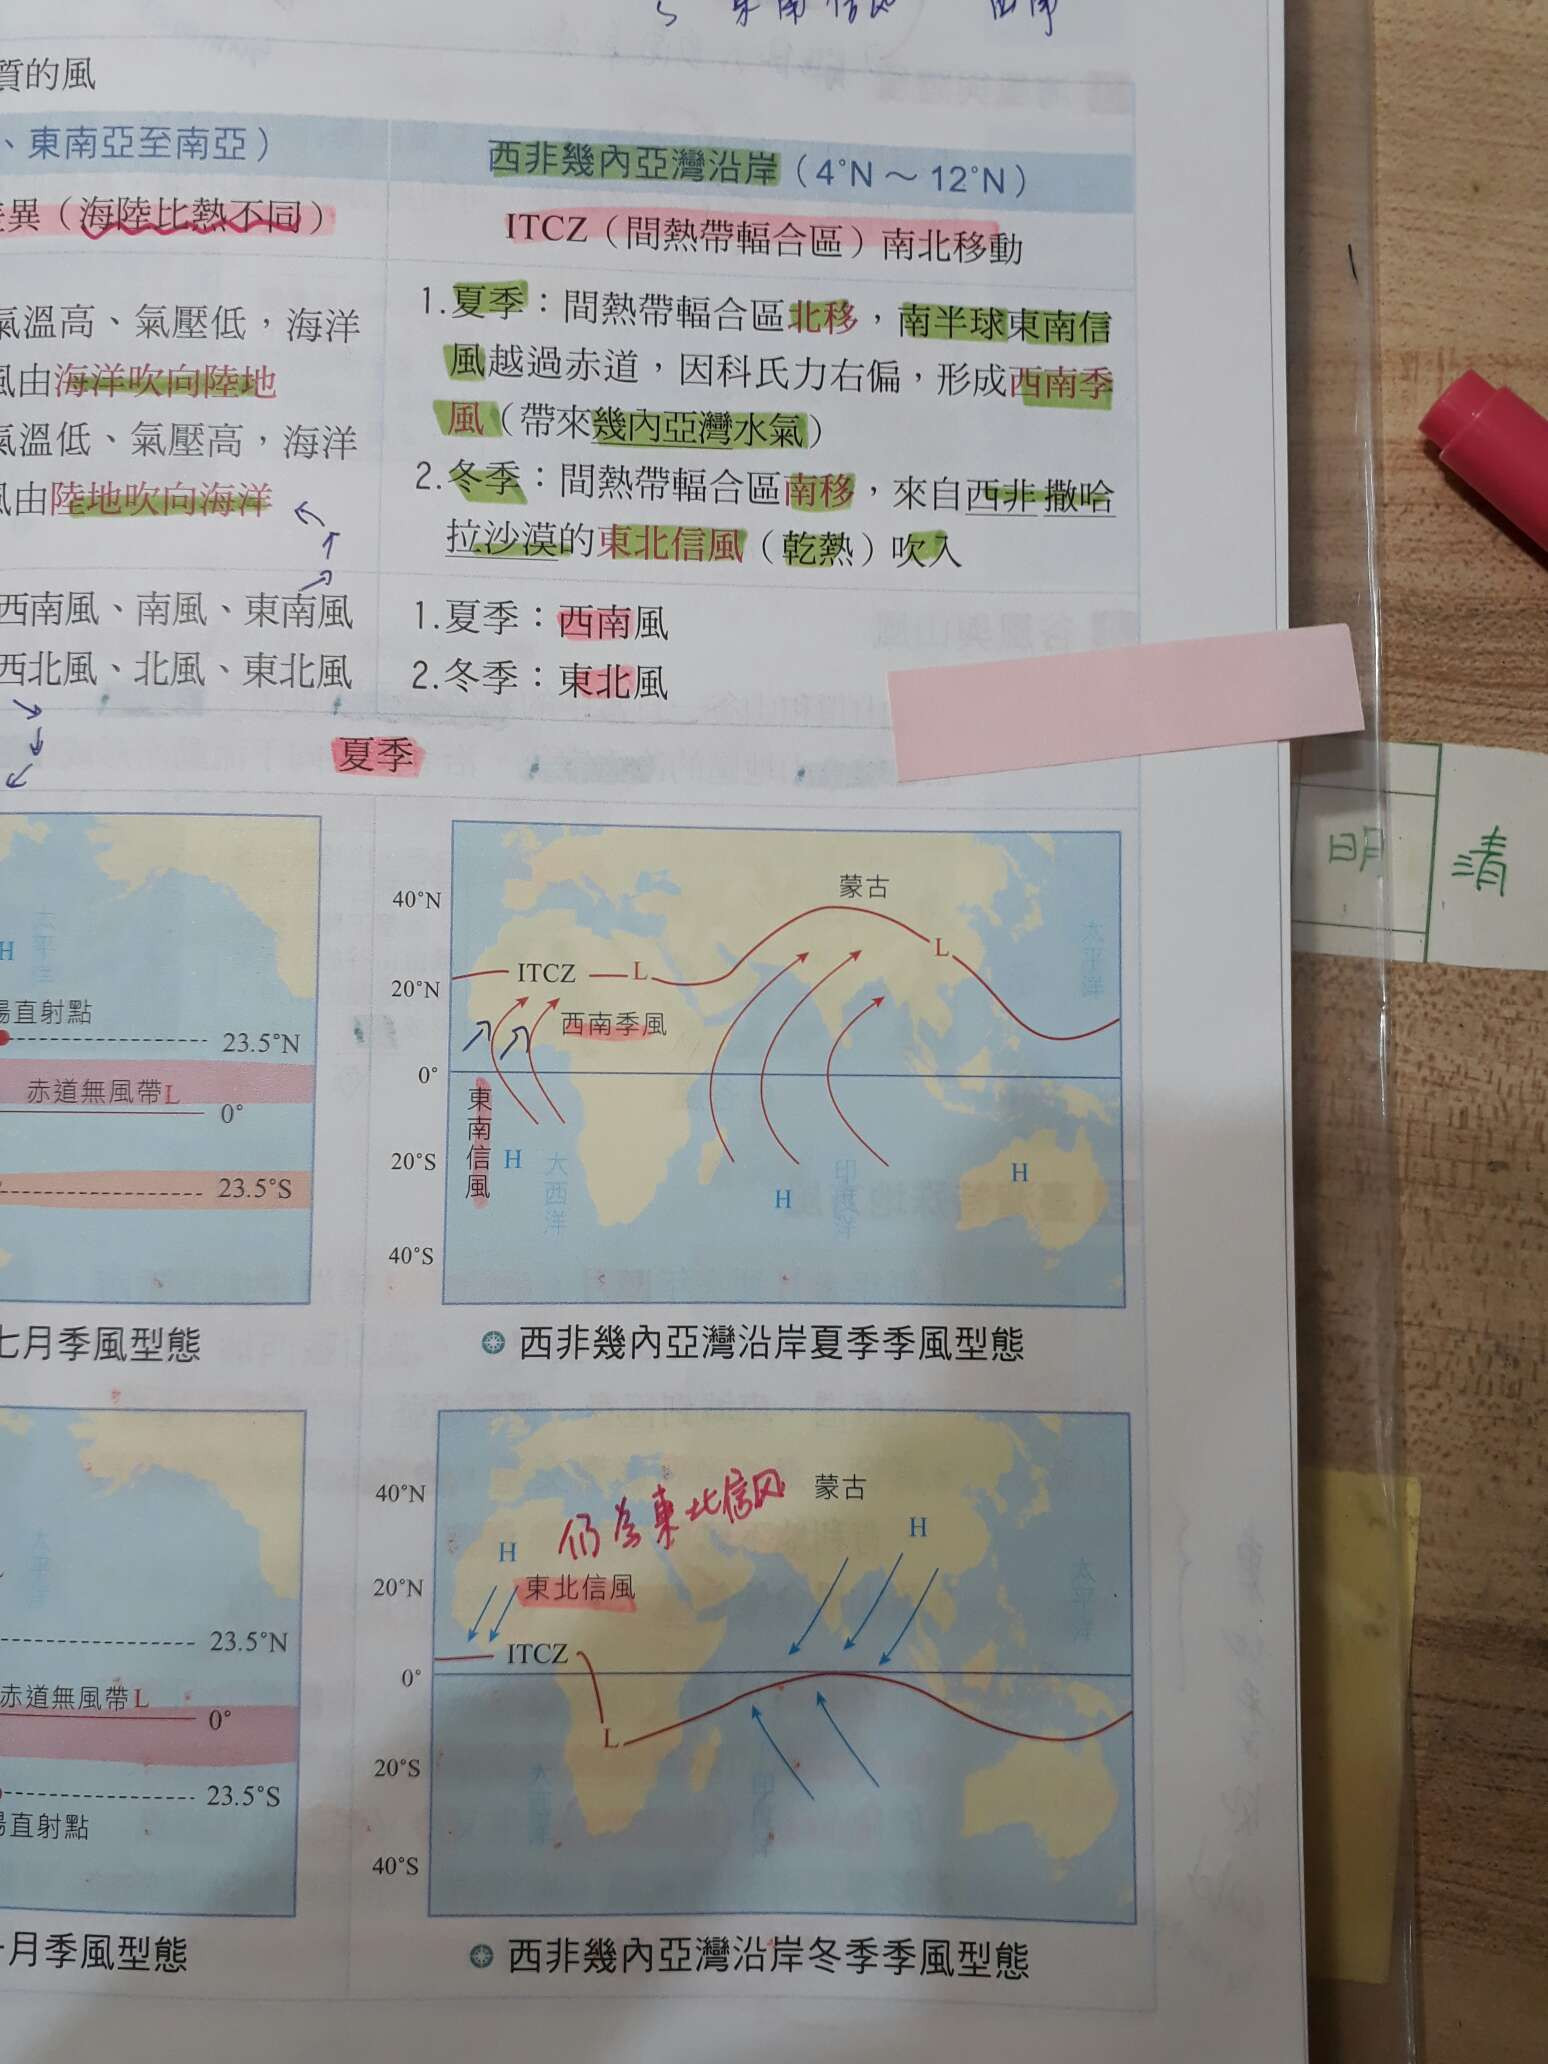 質的風
、東南亞至南亞）
異（海陸比熱不同）
氣溫高、氣壓低，海洋
風由海洋吹向陸地
氣溫低、氣壓高，海洋
風由陸地吹向海洋
西南風、南風、東南風
西北風、北風、東北風
西非幾內亞灣沿岸（4°N～12°N）
ITCZ（間熱帶輻合區）南北移動
1.夏季：間熱帶輻合區北移，南半球東南信
風越過赤道，因科氏力右偏，形成西南季
風（帶來幾內亞灣水氣）
2.冬季：間熱帶輻合區南移，來自西非撒哈
拉沙漠的東北信風（乾熱）吹入
1.夏季：西南風
2.冬季：東北風
夏季
H
太平洋
陽直射點
23.5°N
赤道無風帶L
0°
23.5°S
七月季風型態
40°N
20°N
0°
20°S
40°S
蒙古
L
ITCZ
L
太平洋
西南季風
東南信風
H
大西洋
H
印度洋
H
西非幾內亞灣沿岸夏季季風型態
23.5°N
赤道無風帶L
0°
23.5°S
陽直射點
月季風型態
40°N
20°N
0°
20°S
40°S
仍為東北信风
蒙古
H
H
東北信風
太平洋
ITCZ
L
西非幾內亞灣沿岸冬季季風型態
明
清